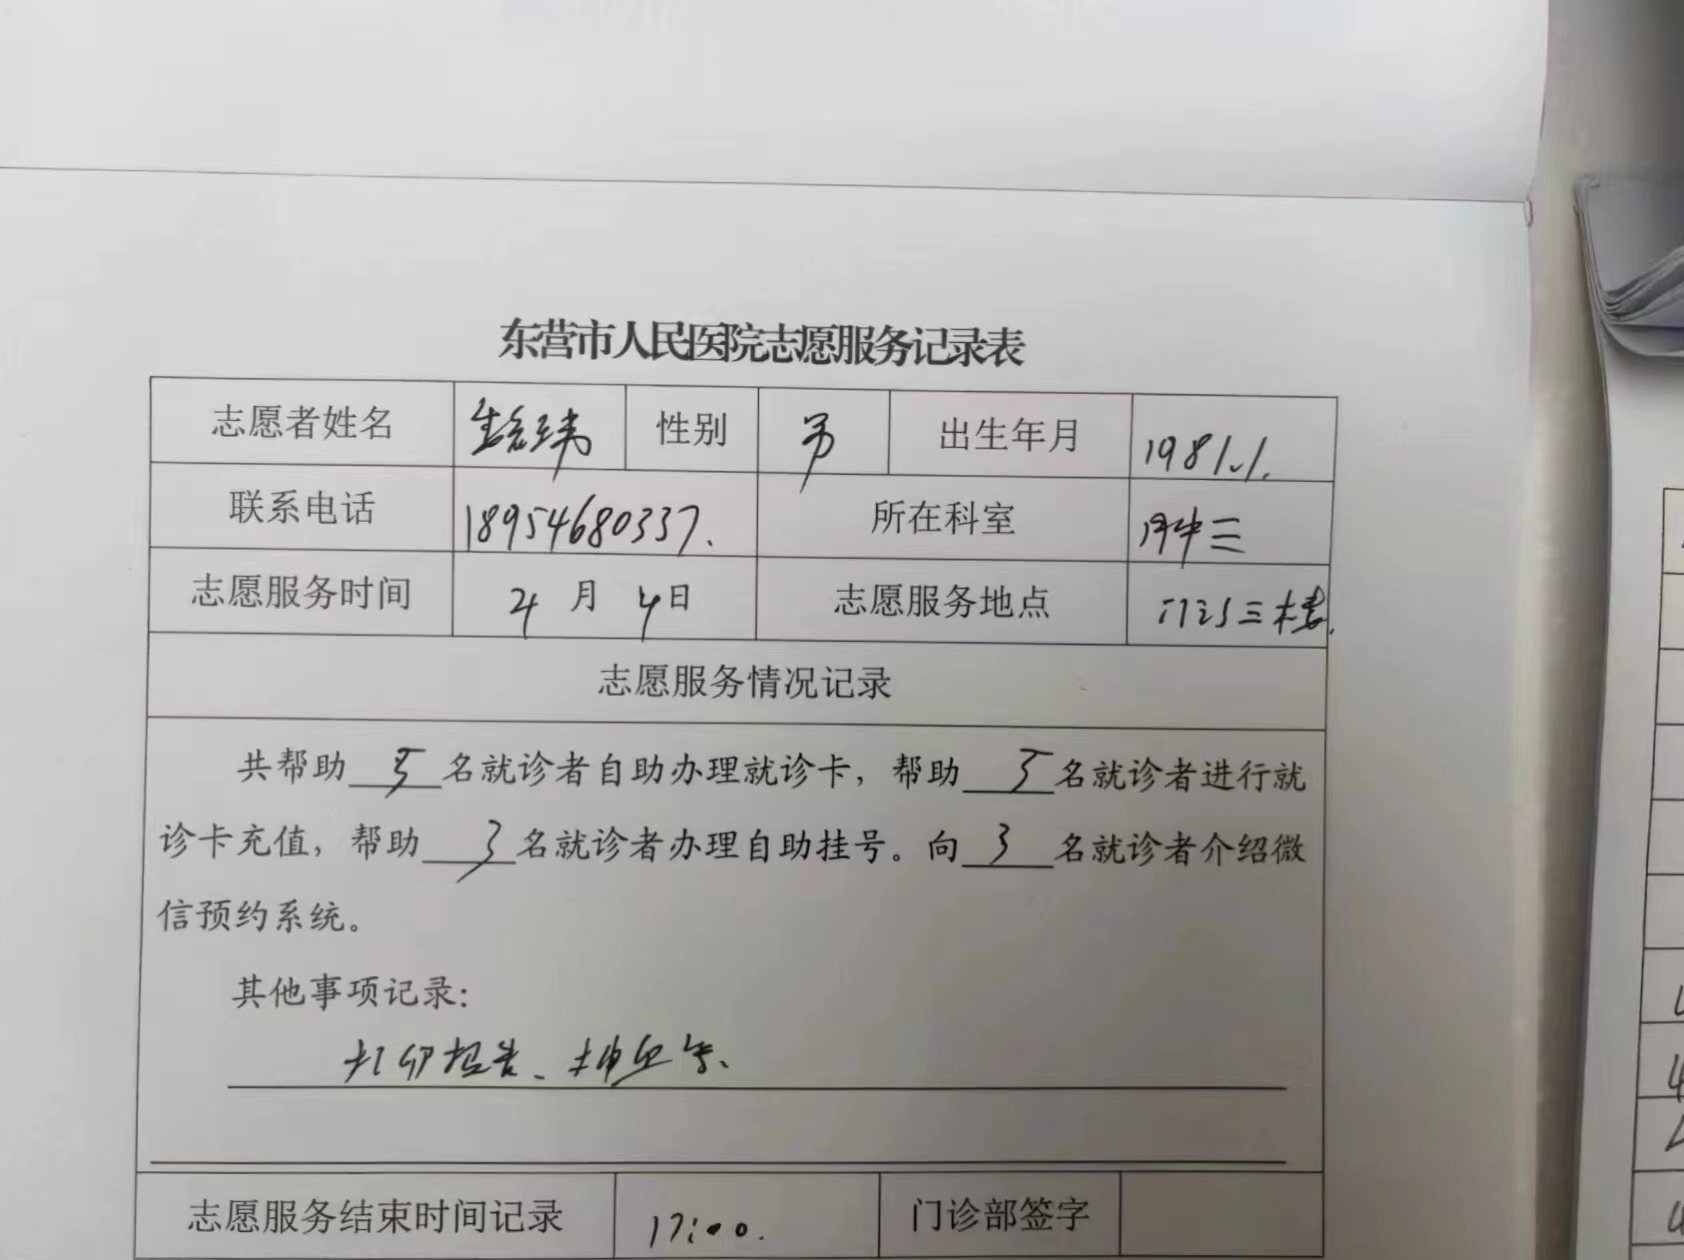 东营市人民医院志愿服务记录表
志愿者姓名 性别 男 出生年月 1981.1.
联系电话 18954680337. 所在科室
志愿服务时间 4月4日 志愿服务地点 门诊三楼.
志愿服务情况记录
共帮助 5 名就诊者自助办理就诊卡，帮助 5 名就诊者进行就
诊卡充值，帮助 3 名就诊者办理自助挂号。向 3 名就诊者介绍微
信预约系统。
其他事项记录：
打印报告、抽血等、
志愿服务结束时间记录 17:00. 门诊部签字